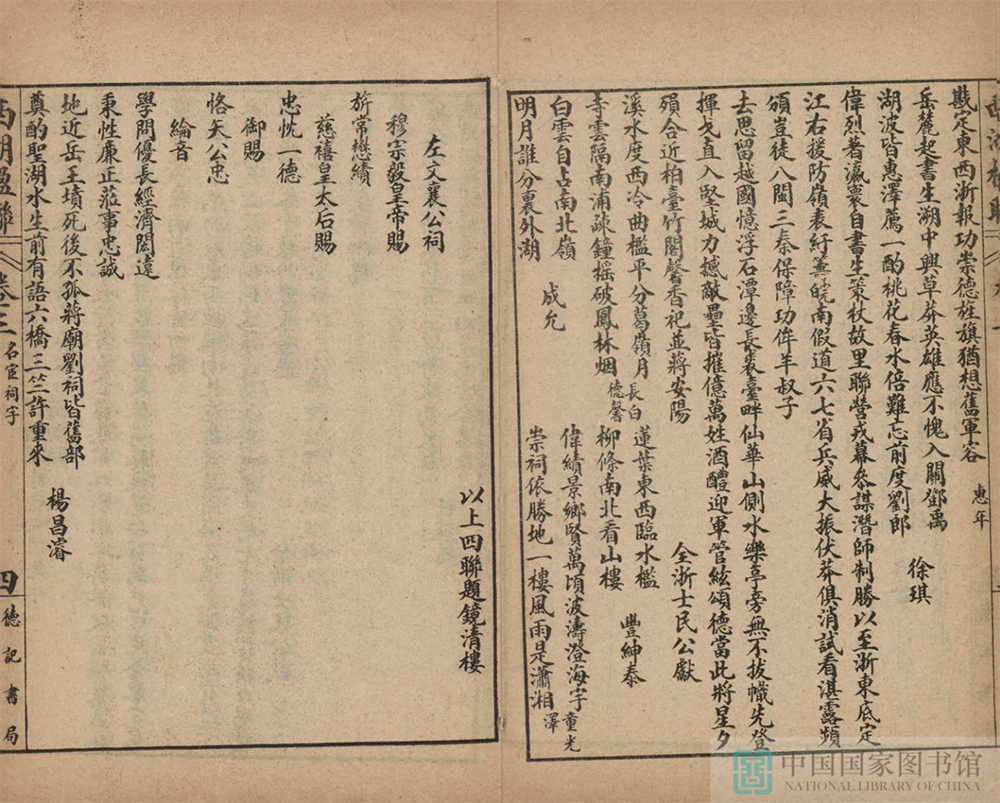 戡定東西浙報功崇德旌旗猶想舊軍容 惠年
岳麓起書生溯中興草莽英雄應不愧入關鄧禹
湖波皆惠澤薦一酌桃花春水倍難忘前度劉郎 徐琪
偉烈著瀛寰自書生策杖故里聯營戎幕參謀潛師制勝以至浙東底定
江右援防嶺表紓籌皖南假道六七省兵威大振伏莽俱消試看湛露頻
頒豈徒八閩三秦保障功侔羊叔子
去思留越國憶浮石潭邊長裘臺畔仙華山側水樂亭旁無不拔幟先登
揮戈直入堅城力撼敵壘皆摧億萬姓酒醴迎軍管絃頌德當此將星夕
殞合近柏臺竹閣馨香祀並蔣安陽 全浙士民公獻
溪水度西泠曲檻平分葛嶺月 長白德馨 蓮葉東西臨水檻
寺雲隔南浦疎鐘搖破鳳林烟 柳條南北看山樓 豐紳泰
白雲自占南北嶺 偉績景鄉賢萬頃波濤澄海宇 童光澤
明月誰分裏外湖 成允 崇祠依勝地一樓風雨是瀟湘
以上四聯題鏡清樓
左文襄公祠
穆宗毅皇帝賜
旂常懋績
慈禧皇太后賜
忠忱一德
御賜
恪矢公忠
綸音
學問優長經濟閎遠
秉性廉正蒞事忠誠
地近岳王墳死後不孤蔣廟劉祠皆舊部
奠酌聖湖水生前有語六橋三竺許重來 楊昌濬
西湖楹聯 卷三 名宦祠宇 四 德記書局
中国国家图书馆
NATIONAL LIBRARY OF CHINA